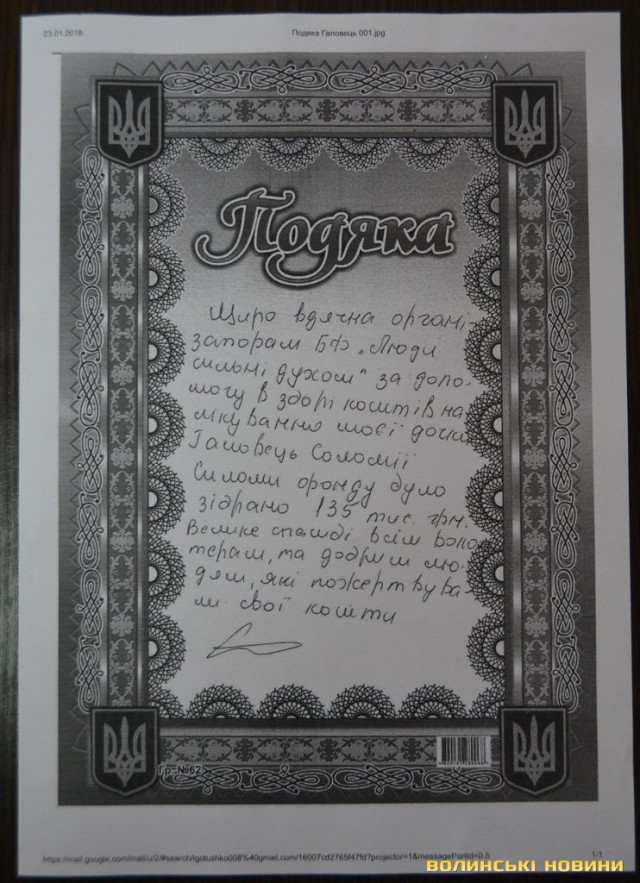 23.01.2018 Подяка Галовець 001.jpg
Подяка
Щиро вдячна органі
заторам БФ „Люди
сильні духом" за допо-
могу в зборі коштів на
лікування моєї дочки
Галовець Соломії
Силами фонду було
зібрано 135 тис. грн.
Велике спасибі всім воло
терам, та добрим лю-
дям, які пожертвува-
ли свої кошти
Гр. №62
https://mail.google.com/mail/u/2/#search/igotushko008%40gmail.com/16007cd2765f47fd?projector=1&messagePartId=0.5 1/1
ВОЛИНСЬКІ НОВИНИ